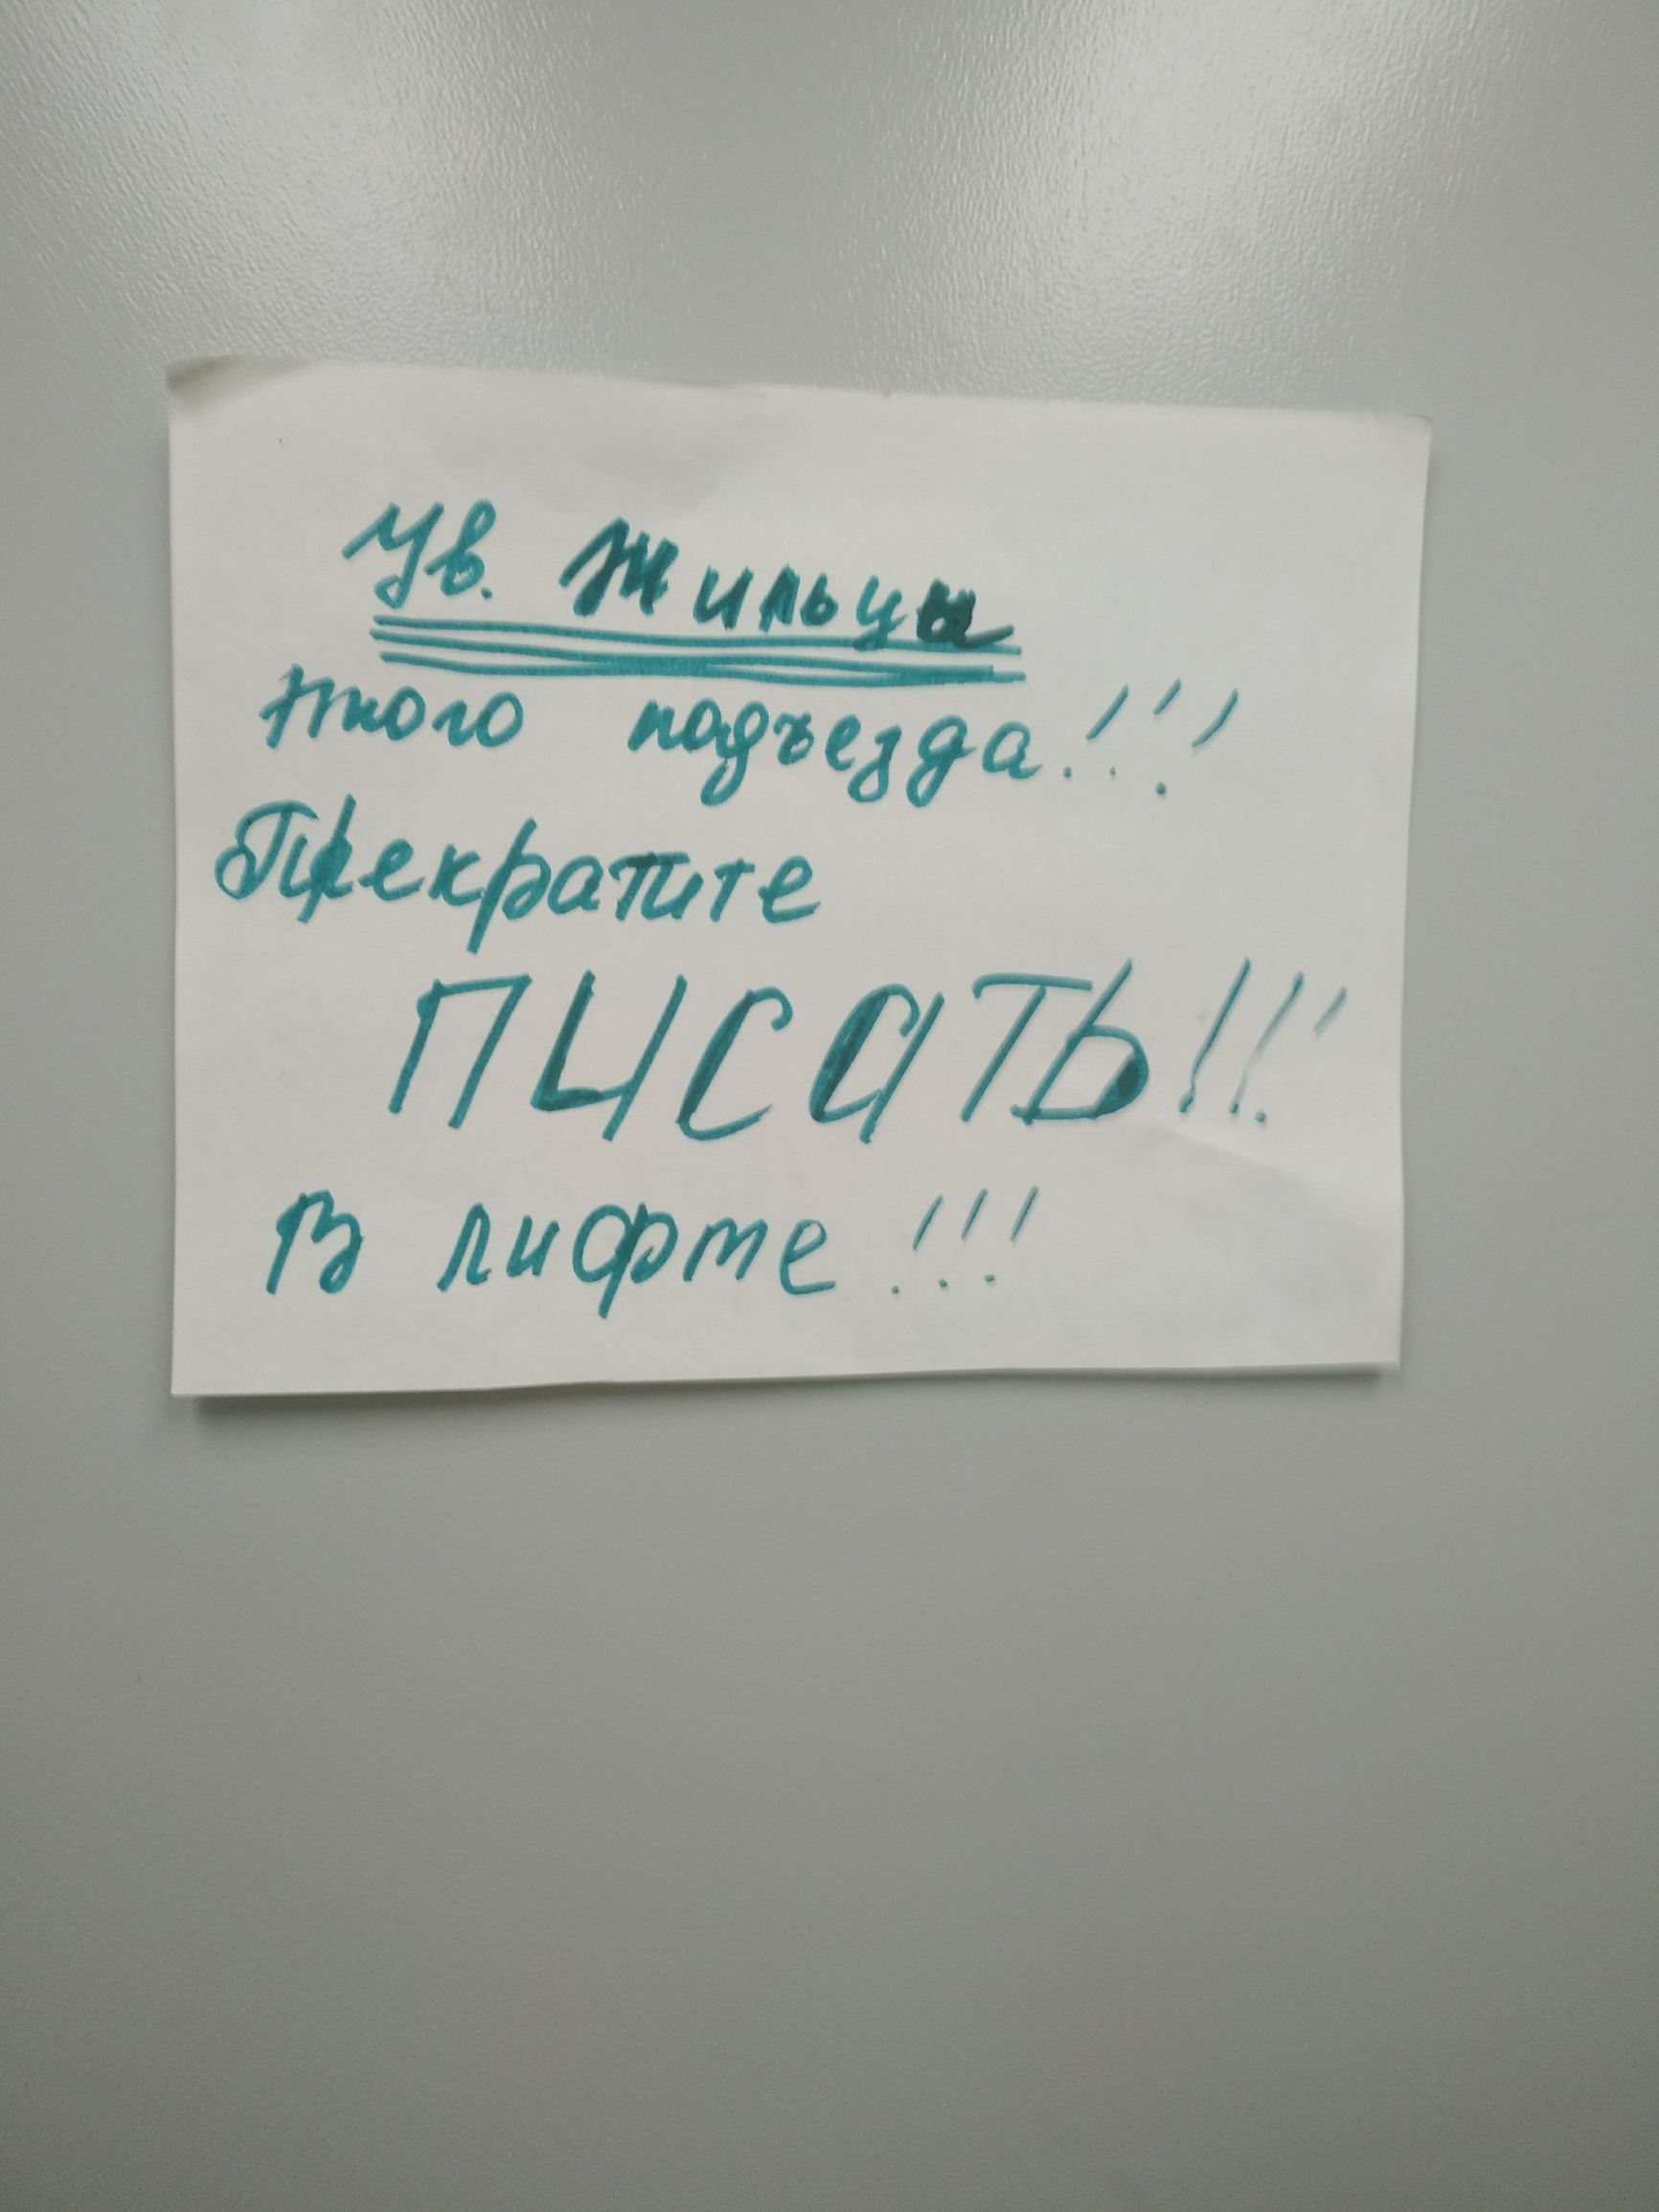 Ув. Жильцы
этого подъезда!!!
Прекратите
ПИСАТЬ!!!
В лифте!!!